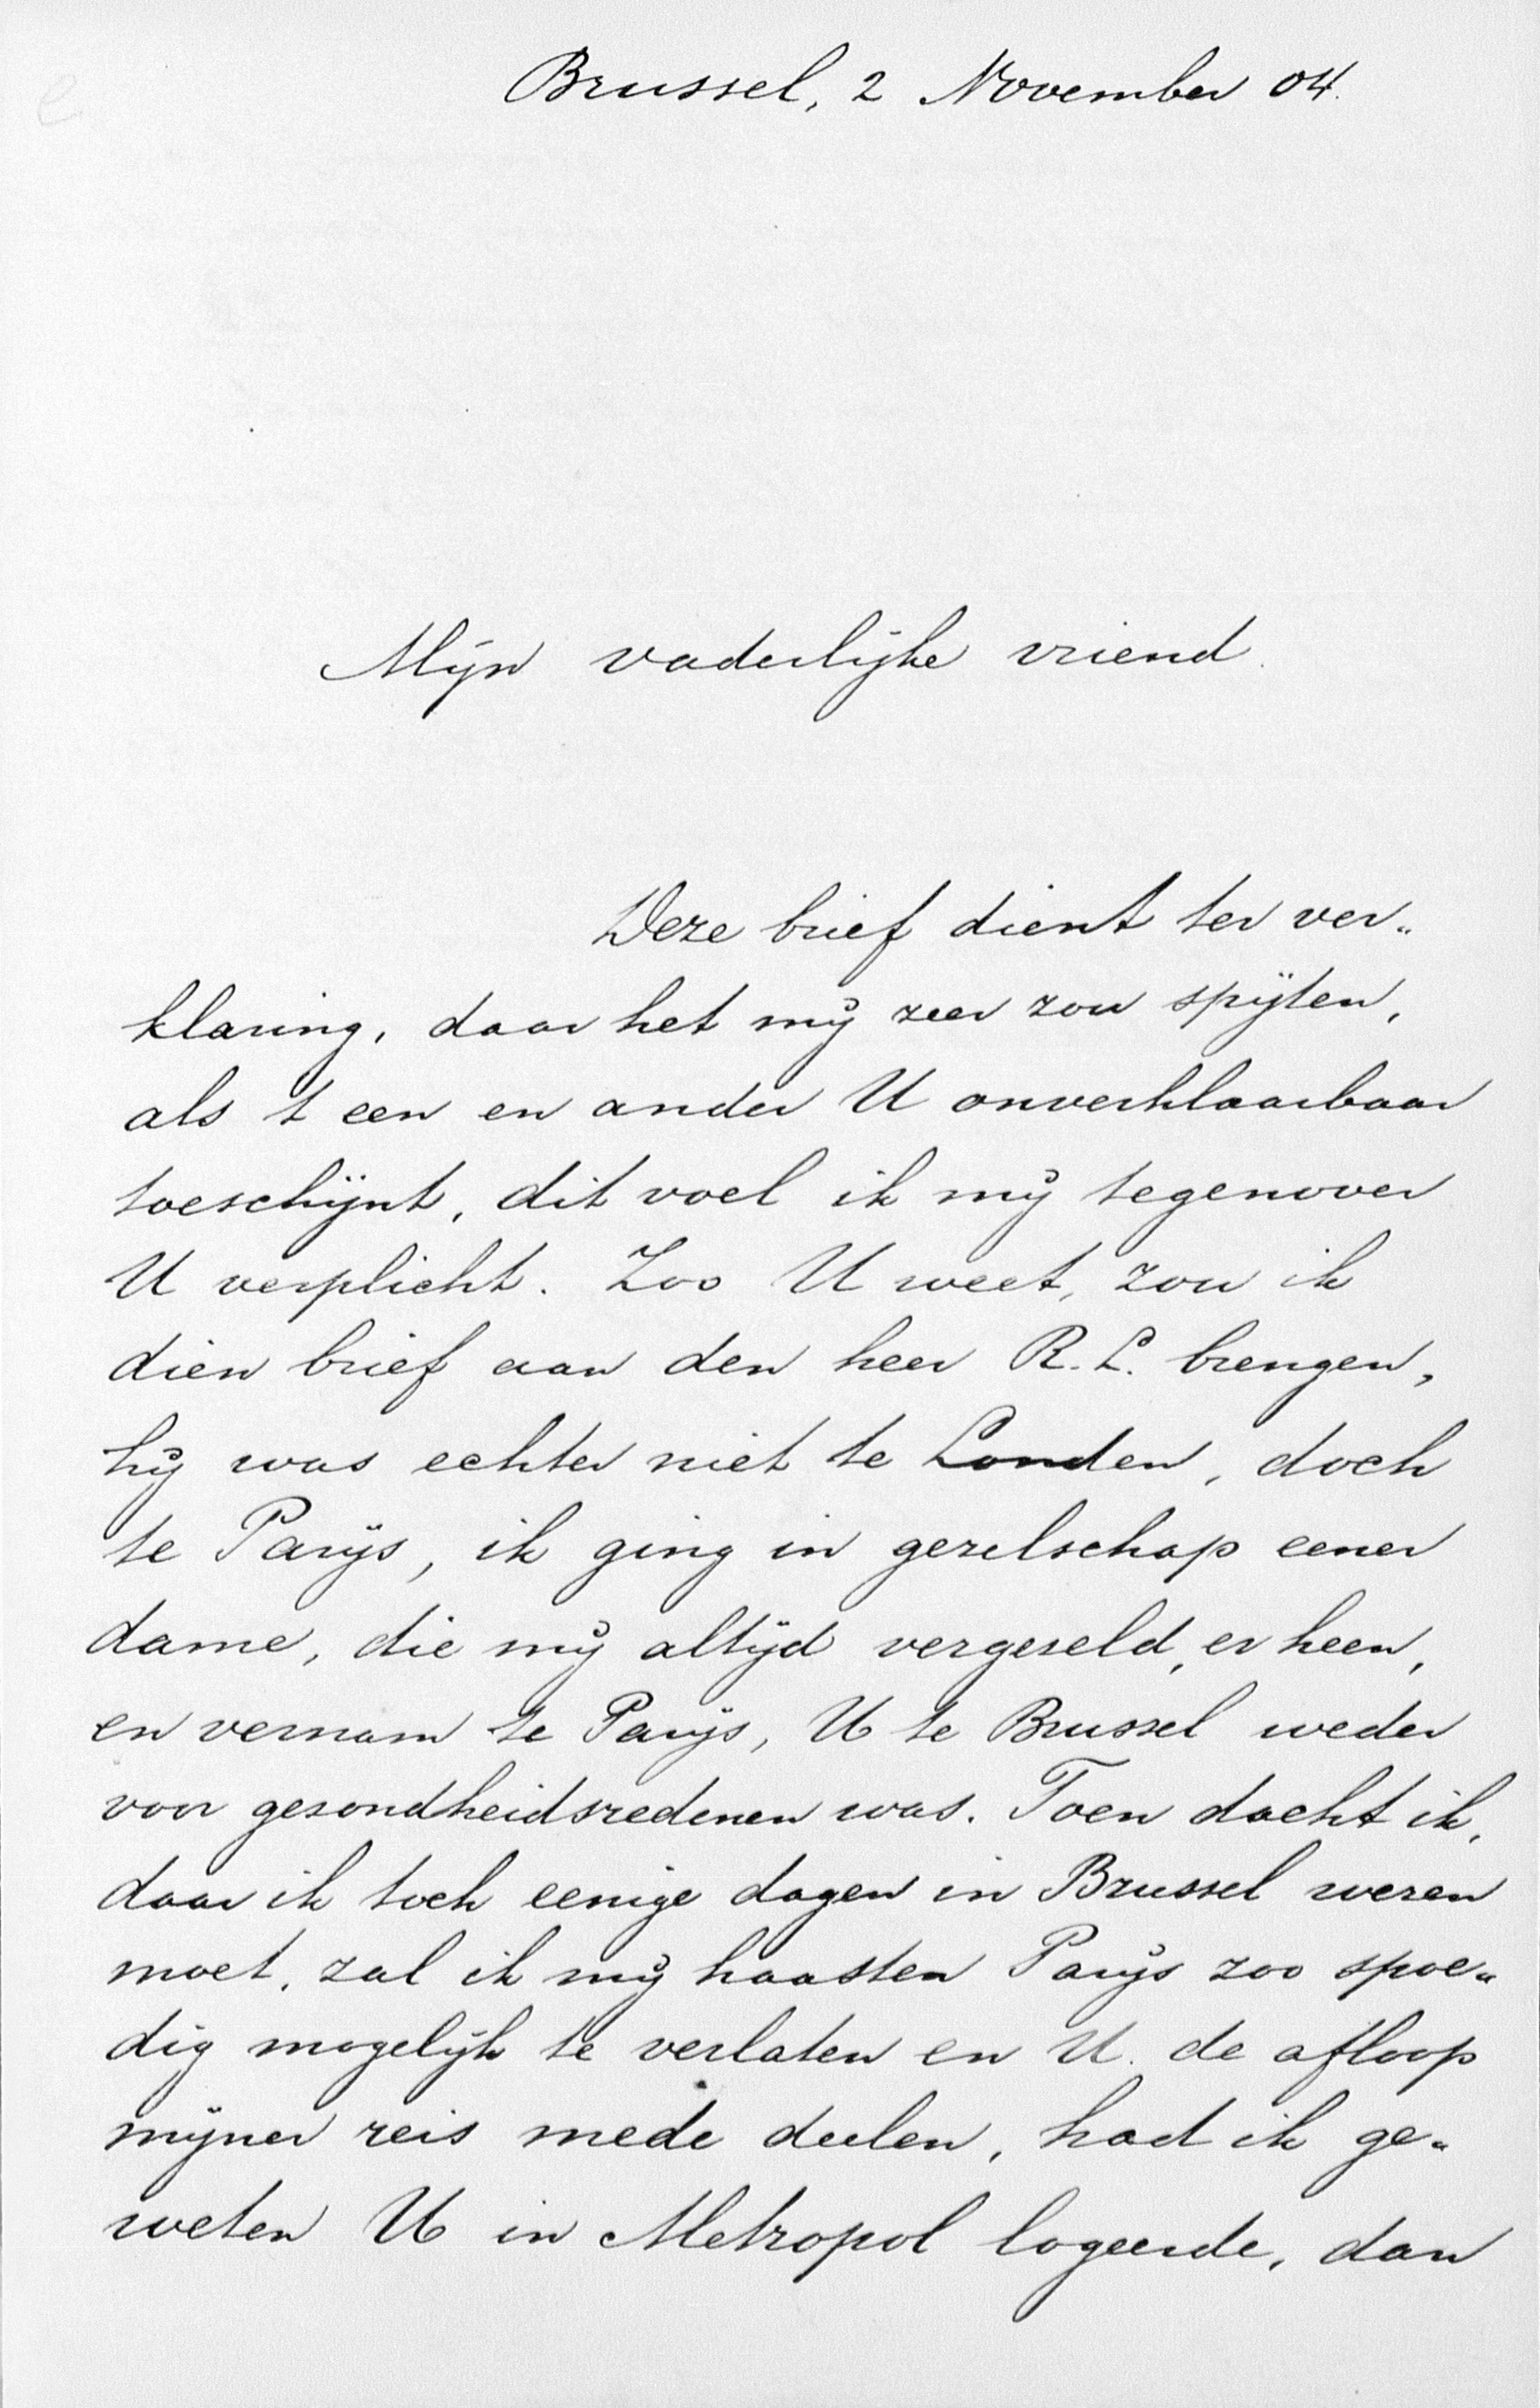 Brussel, 2 November 04.
Mijn vaderlijke vriend.
Deze brief dient ter ver„
klaring, daar het mij zeer zou spijten,
als t een en ander U onverklaarbaar
toeschijnt, dit voel ik mij tegenover
U verplicht. Zoo U weet, zou ik
dien brief aan den heer R. L. brengen,
hij was echter niet te Londen, doch
te Parijs, ik ging in gezelschap eener
dame, die mij altijd vergezeld, er heen,
en vernam te Parijs, U te Brussel weder
voor gezondheidsredenen was. Toen dacht ik,
daar ik toch eenige dagen in Brussel wezen
moet, zal ik mij haasten Parijs zoo spoe„
dig mogelijk te verlaten en U. de afloop
mijner reis mede deelen, had ik ge„
weten U in Metropol logeerde, dan